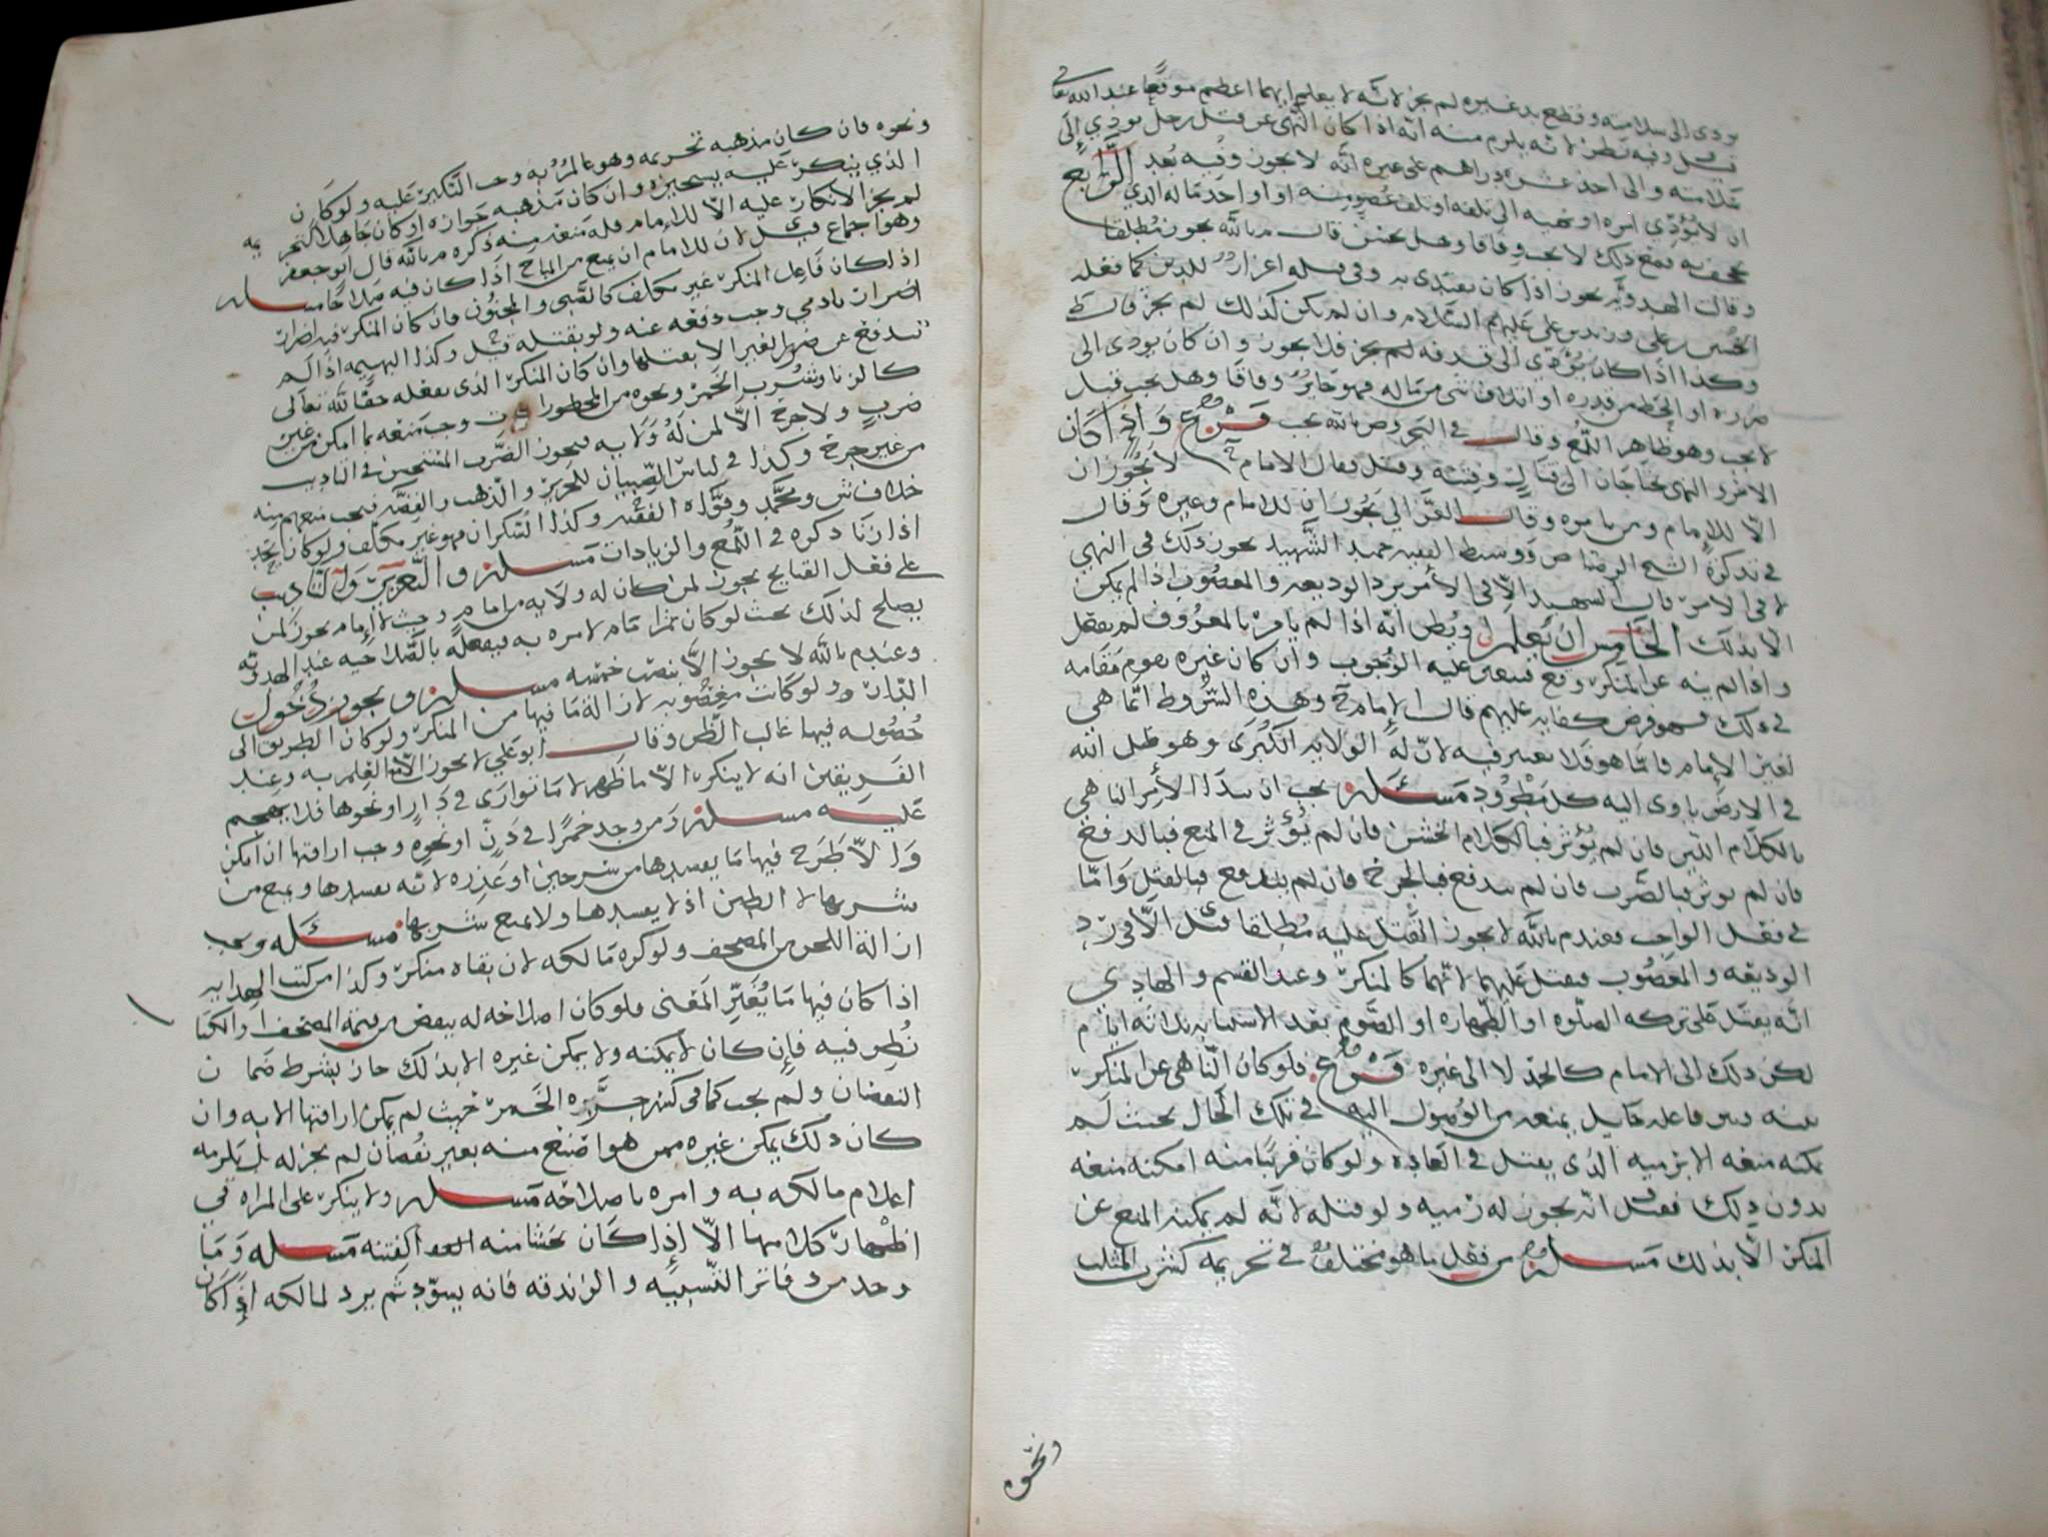 يودى الى سلامته وقطع يد غيره لم يجز لانه لا يعلم ايهما اعظم موقعا عند الله تعالى
قيل وفيه نظر لانه يلزم منه انه اذا كان النهي عن قتل رجل يودي الى
سلامته والى اخذ عشره دراهم على غيره انه لا يجوز وفيه بعد الرابع
ان لا يؤدي امره او نهيه الى تلفه او تلف عضو منه او اخذ ماله الذي
يجحف به فمع ذلك لا يجب وفاقا وهل يحسن قال م بالله يجوز مطلقا
وقالت الهدويه يجوز اذا كان يقتدى به وفى قتله اعزاز للدين كما فعله
الحسين بن علي وزيد بن علي عليهم السلام وان لم يكن كذلك لم يجز قال ط
وكذا اذا كان يؤدي الى قذفه لم يجز فلا يجوز وان كان يودى الى
ضرره او الحط من قدره او اتلاف شى من ماله فهو جائز وفاقا وهل يجب قيل
لا يجب وهو ظاهر اللمع وقال في البحر وض بالله يجب فرع واذا كان
الامر والنهى يحتاجان الى قتال وفتنه وقتل فقال الامام ح لا يجوز ان
الا للامام ومن يامره وقال الغزالي يجوزان للامام وغيره وقال
في تذكرة الشيخ الرصاص ووسيط الفقيه حميد الشهيد يجوز ذلك في النهي
لا في الامر قال السهيد الا في الأمر برد الوديعه والمغصوب اذا لم يمكن
الا بذلك الخامس ان يعلم او يظن انه اذا لم يامر بالمعروف لم يفعل
واذا لم ينه عن المنكر وقع فيتعين عليه الوجوب وان كان غيره يقوم مقامه
في ذلك فهو فرض كفايه عليهم قال الإمام ح وهذه الشروط انما هي
لغير الإمام فاما هو فلا يعتبر فيه لان له الولايه الكبرى وهو ظل الله
في الارض ياوى اليه كل مظرود مسئله يجب ان يبدا الأمر الناهي
بالكلام اللين فان لم يؤثر فبالكلام الخشن فان لم يؤثر في المنع فبالدفع
فان لم يوثر فبالضرب فان لم يندفع فبالجرح فان لم يندفع فبالقتل واما
في فعل الواجب فعند م بالله لا يجوز القتل عليه مطلقا قيل الا في رد
الوديعه والمغصوب فيقتل عليهما لانهما كالمنكر وعند القسم والهادي
انه يقتل على تركه الصلوه او الطهاره او الصوم بعد الاستتابه ثلاثه ايام
لكن ذلك الى الامام كالحد لا الى غيره فرع فلو كان الناهي عن المنكر
بينه وبين فاعله حايل يمنعه من الوصول اليه في تلك الحال بحيث لم
يمكنه منعه الا برميه الذى يقتل في العاده ولو كان قريبا منه امكنه منعه
بدون ذلك فقيل انه يجوز له رميه ولو قتله لانه لم يمكنه المنع عن
المنكر الا بذلك مسله من فعل ما هو مختلف في تحريمه كشرب المثلث
ونحوه
ونحوه فان كان مذهبه تحريمه وهو عالم به وجب النكير عليه ولو كان
الذي ينكر عليه يستجيزه وان كان مذهبه جوازه او كان جاهلا لتحريمه
لم يجز الانكار عليه الا للامام فله منعه منه ذكره م بالله قال ابو جعفر
وهو اجماع قيل لان للامام ان يمنع من المباح اذا كان فيه صلاحا مسله
اذا كان فاعل المنكر غير مكلف كالصبي والمجنون فان كان المنكر فيه اضرار
اضرارا بادمي وجب دفعه عنه ولو بقتله قيل وكذا البهيمه اذا لم
تندفع عن ضرر الغير الا بقتلها وان كان المنكر الذى يفعله حقا لله تعالى
كالزنا وشرب الخمر ونحوه من المحظورات وجب منعه بما امكن من غير
ضرب ولا جرح الا لمن له ولايه فيجوز الضرب المستحسن في التاديب
من غير جرح وكذا في لباس الصبيان للحرير والذهب والفضه فيجب منعهم منه
خلاف ش ومحمد وقواه الفقيه وكذا السكران فهو غير مكلف ولو كان يحد
اذا زنا ذكره في اللمع والزيادات مسله والتعزير والتاديب
على فعل القبايح يجوز لمن كان له ولايه من امام وحيث لا إمام يجوز لمن
يصلح لذلك بحيث لو كان ثم امام لامره به فيفعله بالصلاحيه عند الهدويه
وعند م بالله لا يجوز الا بنصب خمسه مسله ويجوز دخول
الدار ولو كانت مغصوبه لازالة ما فيها من المنكر ولو كان الطريق الى
حصوله فيها غالب الظن وقال ابو علي لا يجوز الا مع العلم به وعند
الفريقين انه لا ينكر الا ما ظهر لا ما توارى في دار او نحوها فلا يهجم
عليه مسله ومن وجد خمرا في دن او نحوه وجب اراقتها ان امكن
والا طرح فيها ما يفسدها من سرجين او عذره لانه يفسدها ويمنع من
شربها لا الطين اذ لا يفسدها ولا يمنع شربها مسئله ويجب
ازالة اللحن من المصحف ولو كره مالكه لان بقاه منكر وكذا من كتب الهدايه
اذا كان فيها ما يغير المعنى فلو كان اصلاحه له ينقص من قيمة المصحف او الكتاب
نظر فيه فإن كان لا يمكنه ولا يمكن غيره الا بذلك جاز بشرط ضمان
النقصان ولم يجب كما في كسر جره الخمر حيث لم يمكن اراقتها الا به وان
كان ذلك يمكن غيره ممن هو اصنع منه بغير نقصان لم يجز له بل يلزمه
اعلام مالكه به وامره باصلاحه مسله ولا ينكر على المراه في
اظهار كلامها الا إذا كان غشا منه الفتنه مسله وما
وجد من دفاتر الشبيه والزندقه فانه يسود ثم يرد لمالكه إذا كان